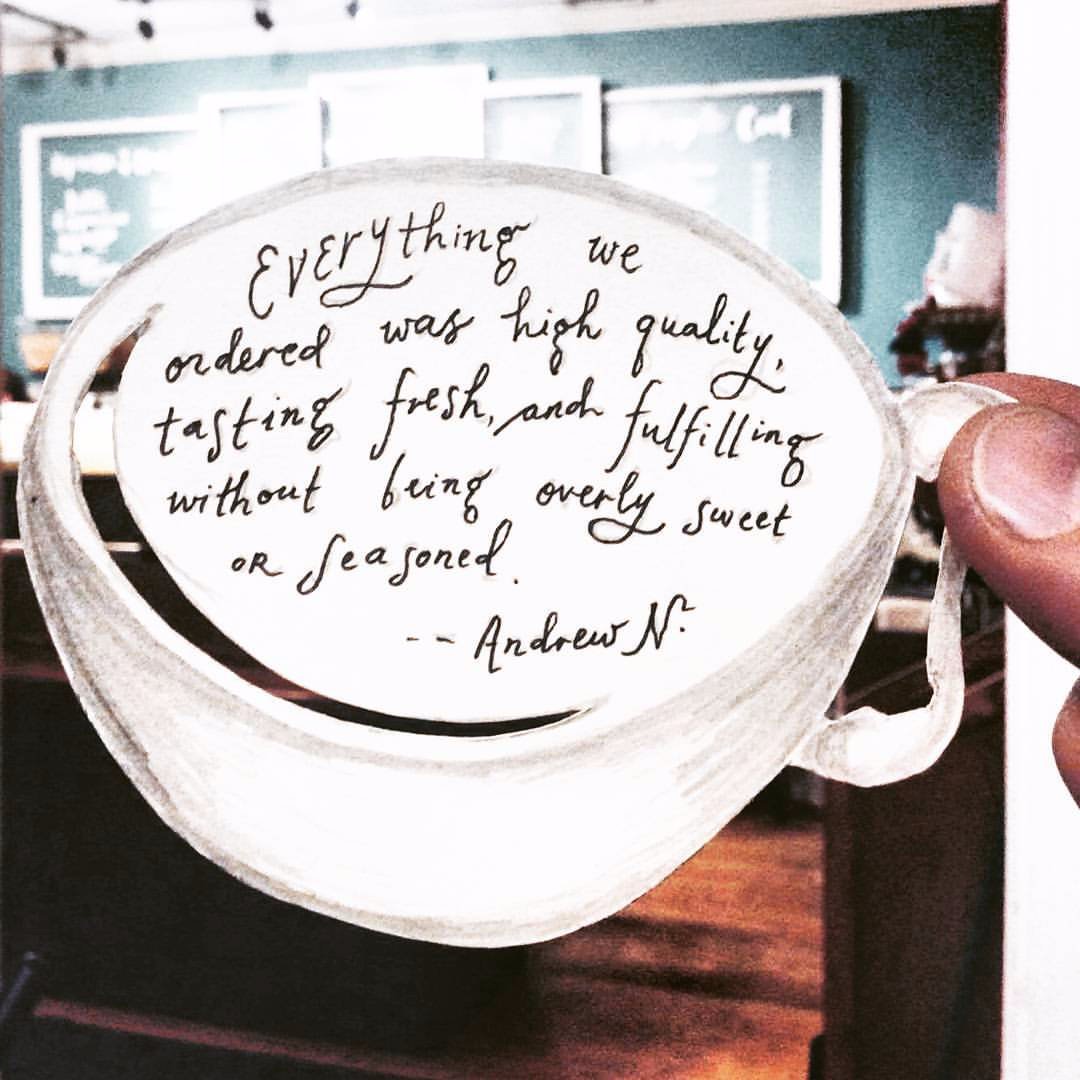 Everything we
ordered was high quality,
tasting fresh, and fulfilling
without being overly sweet
or seasoned.
-- Andrew N.